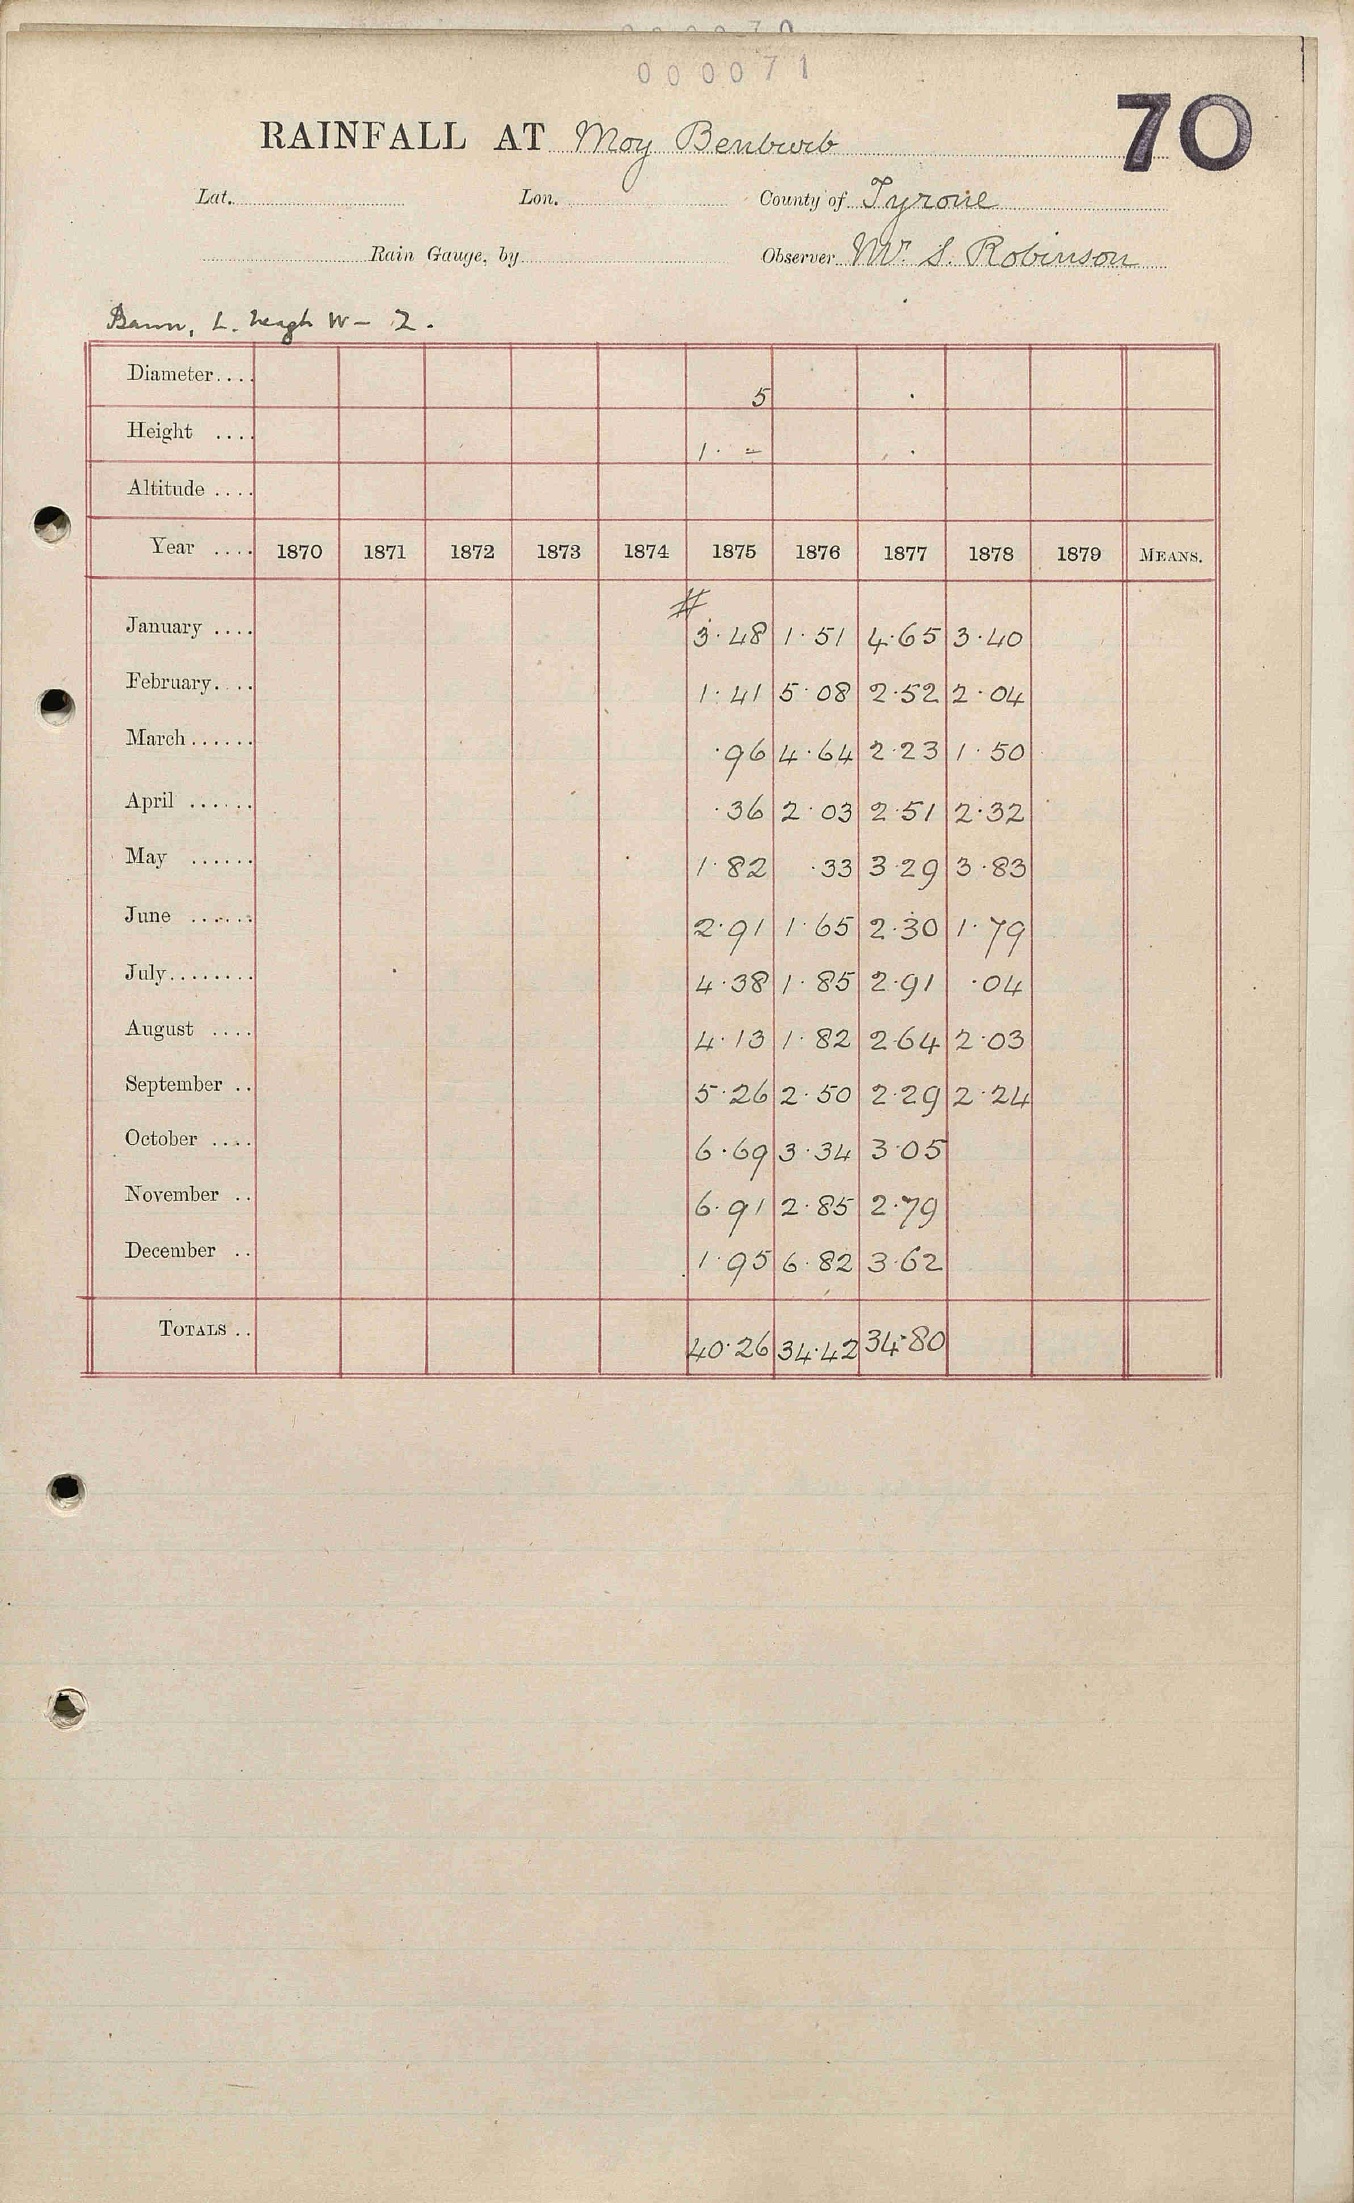 000070
000071
70
RAINFALL AT Moy Benburb
Lat. Lon. County of Tyrone
Rain Gauge, by Observer Mr. S. Robinson
Bann, L. Neagh W - 2.
Diameter.... 5
Height .... 1. -
Altitude ....
Year .... 1870 1871 1872 1873 1874 1875 1876 1877 1878 1879 MEANS.
#
January .... 3.48 1.51 4.65 3.40
February.... 1.41 5.08 2.52 2.04
March...... .96 4.64 2.23 1.50
April ...... .36 2.03 2.51 2.32
May ...... 1.82 .33 3.29 3.83
June ...... 2.91 1.65 2.30 1.79
July........ 4.38 1.85 2.91 .04
August .... 4.13 1.82 2.64 2.03
September .. 5.26 2.50 2.29 2.24
October .... 6.69 3.34 3.05
November .. 6.91 2.85 2.79
December .. 1.95 6.82 3.62
TOTALS .. 40.26 34.42 34.80